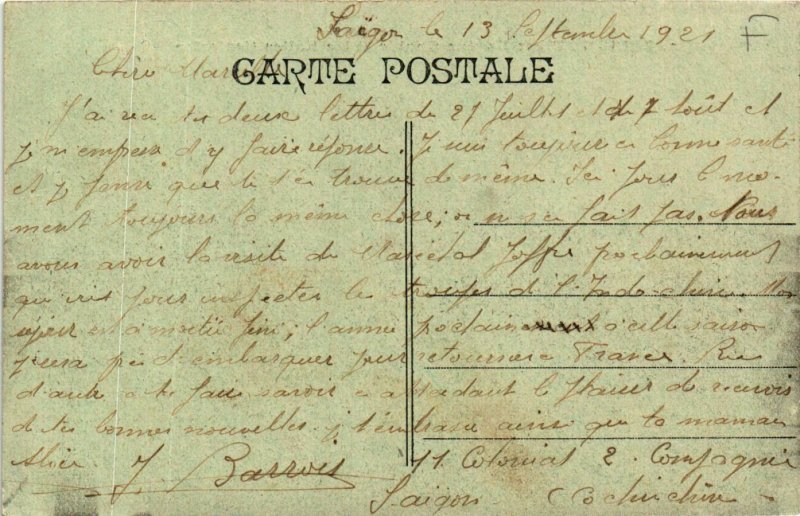 Saïgon le 13 Septembre 1921
F
Chère Marcelle
CARTE POSTALE
J'ai reçu tes deux lettre du 27 Juillet et du 7 Août et
je m'empresse d'y faire réponse. Je suis toujours en bonne santé
et je pense que tu t'en trouve de même. Ici pour le mo-
ment toujours la même chose; on ne s'en fait pas. Nous
avons avoir la visite du Maréchal Joffre prochainement
qui vient pour inspecter les troupes de l'Indo-chine. Mon
séjour est à moitié fini; l'année prochaine à cette saison
je serai prêt d'embarquer pour retourner en France. Rien
d'autre à te faire savoir en attendant le plaisir de recevoir
de tes bonnes nouvelles je t'embrasse ainsi que ta maman
Alice. J. Barrois 11 Colonial 2. Compagnie
Saïgon (Cochinchine)